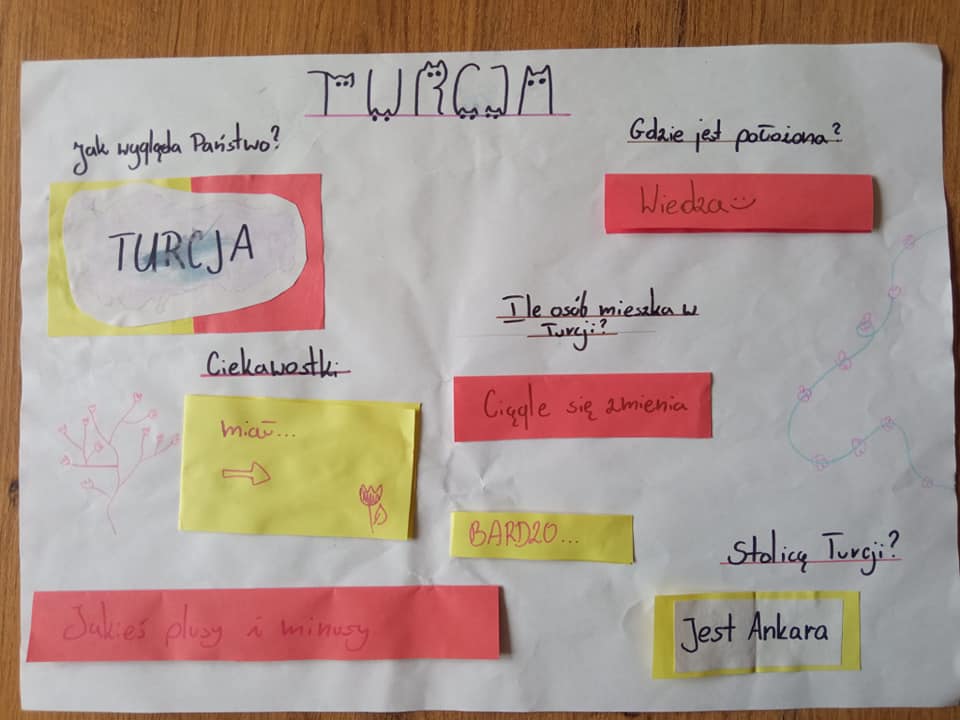 TURCJA
Jak wygląda Państwo?
TURCJA
Gdzie jest położona?
Wiedza
Ile osób mieszka w
Turcji?
Ciągle się zmienia
Ciekawostki
miał...
BARDZO...
Stolicą Turcji?
Jest Ankara
Jakieś plusy i minusy